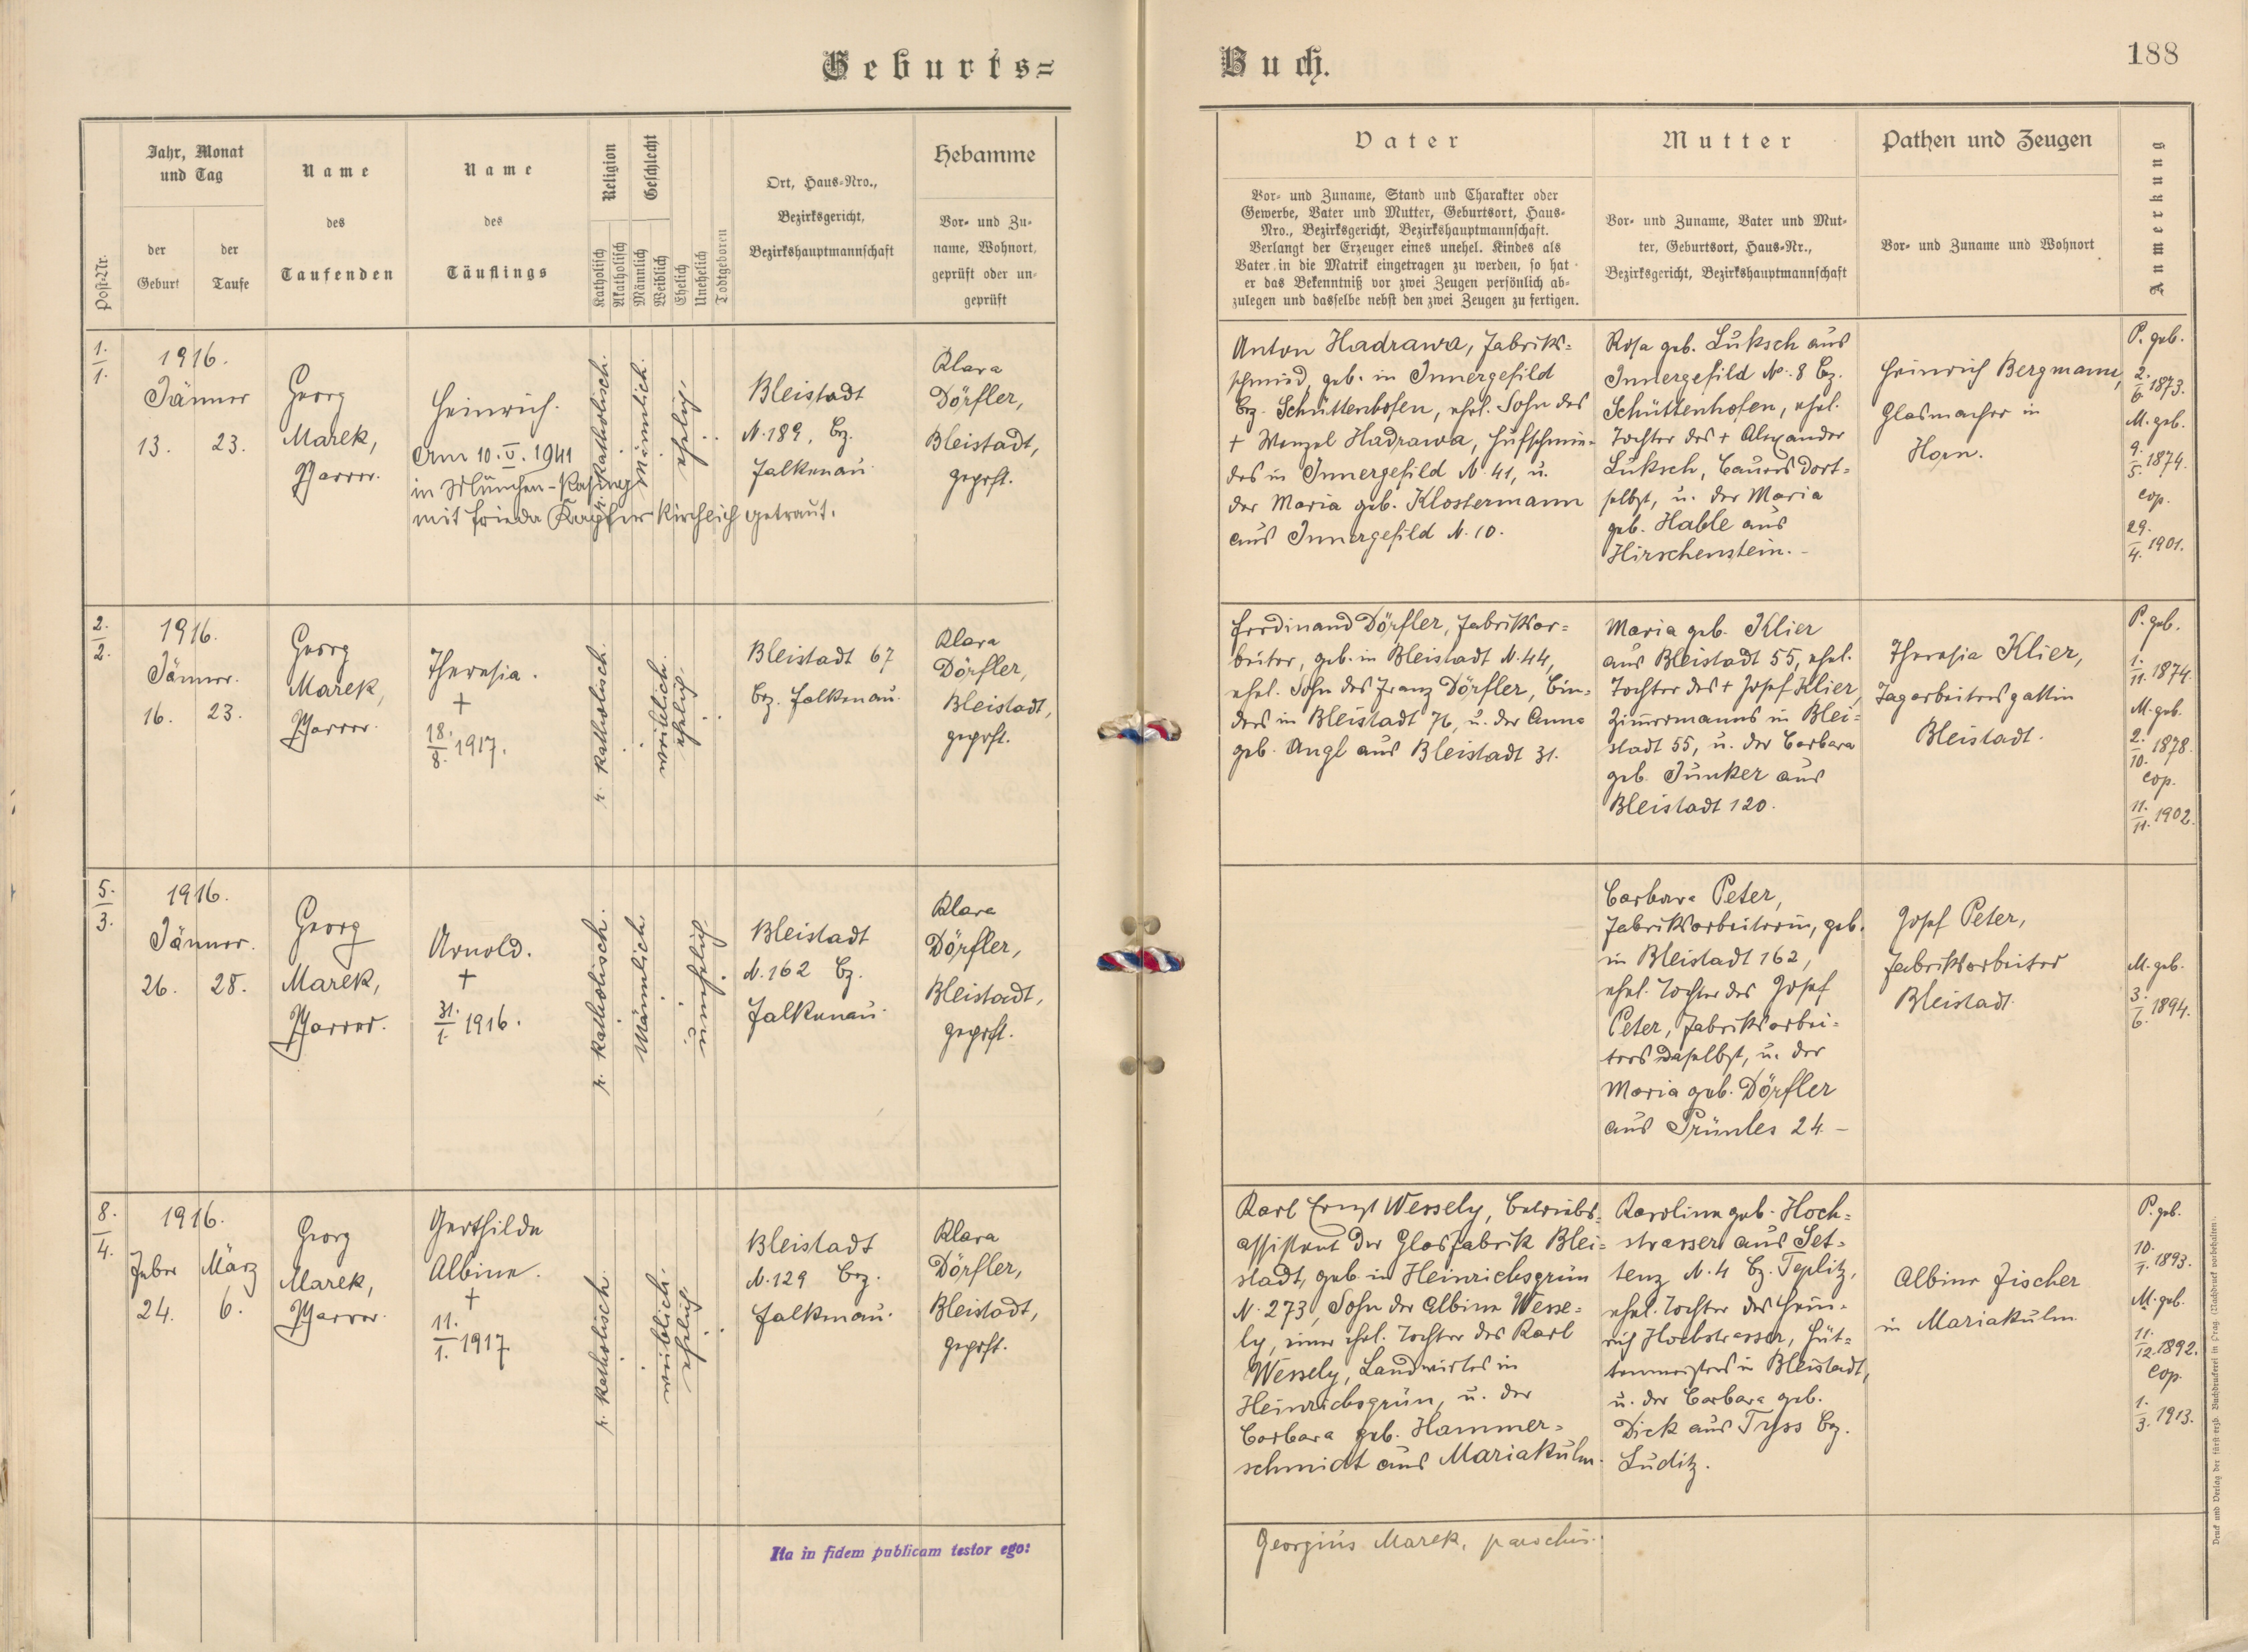 Geburts=
Buch.
188
Post-Nr.
Jahr, Monat
und Tag
der
Geburt
der
Taufe
Name
des
Taufenden
Name
des
Täuflings
Religion
Katholisch
Akatholisch
Geschlecht
Männlich
Weiblich
Ehelich
Unehelich
Todtgeboren
Ort, Haus-Nro.,
Bezirksgericht,
Bezirkshauptmannschaft
Hebamme
Vor- und Zu-
name, Wohnort,
geprüft oder un-
geprüft
Vater
Vor- und Zuname, Stand und Charakter oder
Gewerbe, Vater und Mutter, Geburtsort, Haus-
Nro., Bezirksgericht, Bezirkshauptmannschaft.
Verlangt der Erzeuger eines unehel. Kindes als
Vater in die Matrik eingetragen zu werden, so hat
er das Bekenntniß vor zwei Zeugen persönlich ab-
zulegen und dasselbe nebst den zwei Zeugen zu fertigen.
Mutter
Vor- und Zuname, Vater und Mut-
ter, Geburtsort, Haus-Nr.,
Bezirksgericht, Bezirkshauptmannschaft
Pathen und Zeugen
Vor- und Zuname und Wohnort
Anmerkung
1.
1.
1916.
Jänner
13. 23.
Georg
Marek,
Pfarrer.
Heinrich.
Am 10. V. 1941
in München-Pasing
mit Frieda Kapfer kirchlich getraut.
r. katholisch.
Männlich.
ehelich.
Bleistadt
N. 189, Bz.
Falkenau.
Klara
Dörfler,
Bleistadt,
geprft.
Anton Hadrawa, Fabriks=
schmied, geb. in Innergefild
Bz. Schüttenhofen, ehel. Sohn des
+ Wenzel Hadrawa, Hufschmie=
des in Innergefild N. 41, u.
der Maria geb. Klostermann
aus Innergefild N. 10.
Rosa geb. Luksch aus
Innergefild No. 8 Bz.
Schüttenhofen, ehel.
Tochter des + Alexander
Luksch, Bauers dort=
selbst, u. der Maria
geb. Hable aus
Hirschenstein. -
Heinrich Bergmann,
Glasmacher in
Horn.
P. geb.
2.
6. 1873.
M. geb.
9.
5. 1874.
cop.
29.
4. 1901.
2.
2.
1916.
Jänner.
16. 23.
Georg
Marek,
Pfarrer.
Theresia.
+
18.
8. 1917.
r. katholisch.
weiblich.
ehelich.
Bleistadt 67
Bz. Falkenau.
Klara
Dörfler,
Bleistadt,
geprft.
Ferdinand Dörfler, Fabriksar=
beiter, geb. in Bleistadt N. 44,
ehel. Sohn des Franz Dörfler, Bin=
ders in Bleistadt 76, u. der Anna
geb. Angl aus Bleistadt 31.
Maria geb. Klier
aus Bleistadt 55, ehel.
Tochter des + Josef Klier,
Zimmermanns in Blei=
stadt 55, u. der Barbara
geb. Junker aus
Bleistadt 120.
Theresia Klier,
Tagarbeitersgattin
Bleistadt.
P. geb.
1.
11. 1874.
M. geb.
2.
10. 1878.
cop.
11.
11. 1902.
5.
3.
1916.
Jänner.
26. 28.
Georg
Marek,
Pfarrer.
Arnold.
+
31.
1. 1916.
r. katholisch.
Männlich.
unehelich.
Bleistadt
N. 162 Bz.
Falkenau.
Klara
Dörfler,
Bleistadt,
geprft.
Barbara Peter,
Fabriksarbeiterin, geb.
in Bleistadt 162,
ehel. Tochter des Josef
Peter, Fabriksarbei=
ters daselbst, u. der
Maria geb. Dörfler
aus Prünles 24. -
Josef Peter,
Fabriksarbeiter
Bleistadt.
M. geb.
3.
6. 1894.
8.
4.
1916.
Feber März
24. 6.
Georg
Marek,
Pfarrer.
Gerthilde
Albine.
+
11.
1. 1917
r. katholisch.
weiblich.
ehelich.
Bleistadt
N. 129 Bz.
Falkenau.
Klara
Dörfler,
Bleistadt,
geprft.
Karl Ernst Wessely, Betriebs=
assistent der Glasfabrik Blei=
stadt, geb. in Heinrichsgrün
N. 273, Sohn der Albine Wesse=
ly, einer ehel. Tochter des Karl
Wessely, Landwirtes in
Heinrichsgrün, u. der
Barbara geb. Hammer=
schmidt aus Mariakulm.
Karoline geb. Hoch=
strasser aus Set=
tenz N. 4 Bz. Teplitz,
ehel. Tochter des Hein=
rich Hochstrasser, Hüt=
tenmeisters in Bleistadt,
u. der Barbara geb.
Dick aus Tyss Bz.
Luditz.
Albine Fischer
in Mariakulm
P. geb.
10.
1. 1893.
M. geb.
11.
12. 1892.
cop.
1.
3. 1913.
Ita in fidem publicam testor ego:
Georgius Marek, parochus.
Druck und Verlag der fürst-erzb. Buchdruckerei in Prag. (Nachdruck vorbehalten).